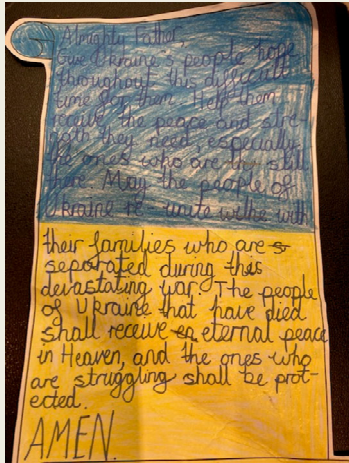 Almighty Father,
Give Ukraine's people hope
throughout this difficult
time for them. Help them
receive the peace and stre-
ngth they need, especially
the ones who are still
there. May the people of
Ukraine re-unite with
their families who are
separated during this
devastating war. The people
of Ukraine that have died
shall receive eternal peace
in Heaven, and the ones who
are struggling shall be prot-
ected.
AMEN.